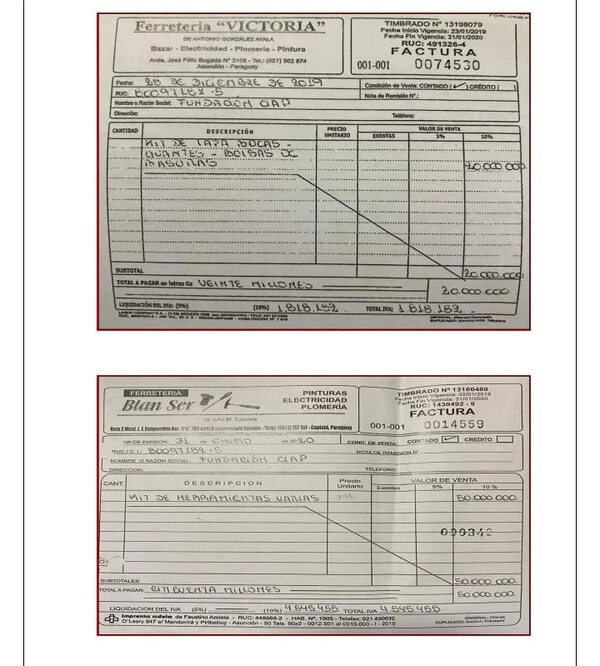 Ferreteria "VICTORIA"
DE ANTONIO GONZÁLEZ AYALA
Bazar - Electricidad - Plomeria - Pintura
Avda. José Félix Bogado N° 2106 - Tel.: (021) 302 874
Asunción - Paraguay
TIMBRADO N° 13198079
Fecha Inicio Vigencia: 23/01/2019
Fecha Fin Vigencia: 31/01/2020
RUC: 491326-4
FACTURA
001-001 0074530
Fecha: 26 DE DICIEMBRE DE 2019
Condición de Venta: CONTADO (✓) CRÉDITO ( )
RUC: 80097182-5
Nota de Remisión N°:
Nombre o Razón Social: FUNDACIÓN CIAP
Dirección: Teléfono:
CANTIDAD DESCRIPCIÓN PRECIO UNITARIO VALOR DE VENTA
EXENTAS 5% 10%
KIT DE TAPA BOCAS -
GUANTES - BOLSAS DE
BASURAS 20.000.000
SUBTOTAL 20.000.000
TOTAL A PAGAR en letras Gs VEINTE MILLONES 20.000.000
LIQUIDACIÓN DEL IVA: (5%) (10%) 1.818.182 TOTAL IVA: 1.818.182
FERRETERIA
Blan Ser
PINTURAS
ELECTRICIDAD
PLOMERÍA
TIMBRADO N° 13160480
Fecha Inicio Vigencia: 02/01/2019
Fecha Fin Vigencia: 31/01/2020
RUC: 1430492 - 8
FACTURA
001-001 0014559
HA DE EMISION: 31 de ENERO de 2020
COND. DE VENTA CONTADO ✓ CREDITO
RUC / C.I.: 80097182-5
NOTA DE REMISIÓN N°
NOMBRE O RAZON SOCIAL: FUNDACIÓN CIAP
DIRECCION: TELEFONO
CANT. DESCRIPCION Precio Unitario VALOR DE VENTA
Exentas 5% 10%
KIT DE HERRAMIENTAS VARIAS 50.000.000
SUBTOTALES 50.000.000
TOTAL A PAGAR: CINCUENTA MILLONES 50.000.000
LIQUIDACION DEL IVA (5%) (10%) 4.545.455 TOTAL IVA 4.545.455
Imprenta adela de Faustino Acosta - RUC: 448666-2 - HAB. N° 1005 - Telefax: 021 490692
ORIGINAL: Cliente
DUPLICADO: Archivo Tributario